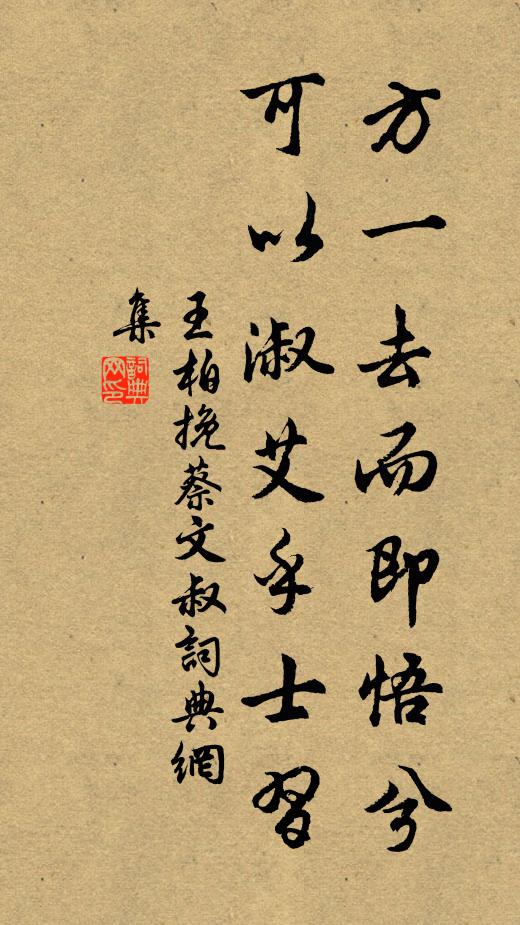 方一去而即悟兮
可以淑艾乎士習
王柏挽蔡文叔詞典網
集
詞典網印